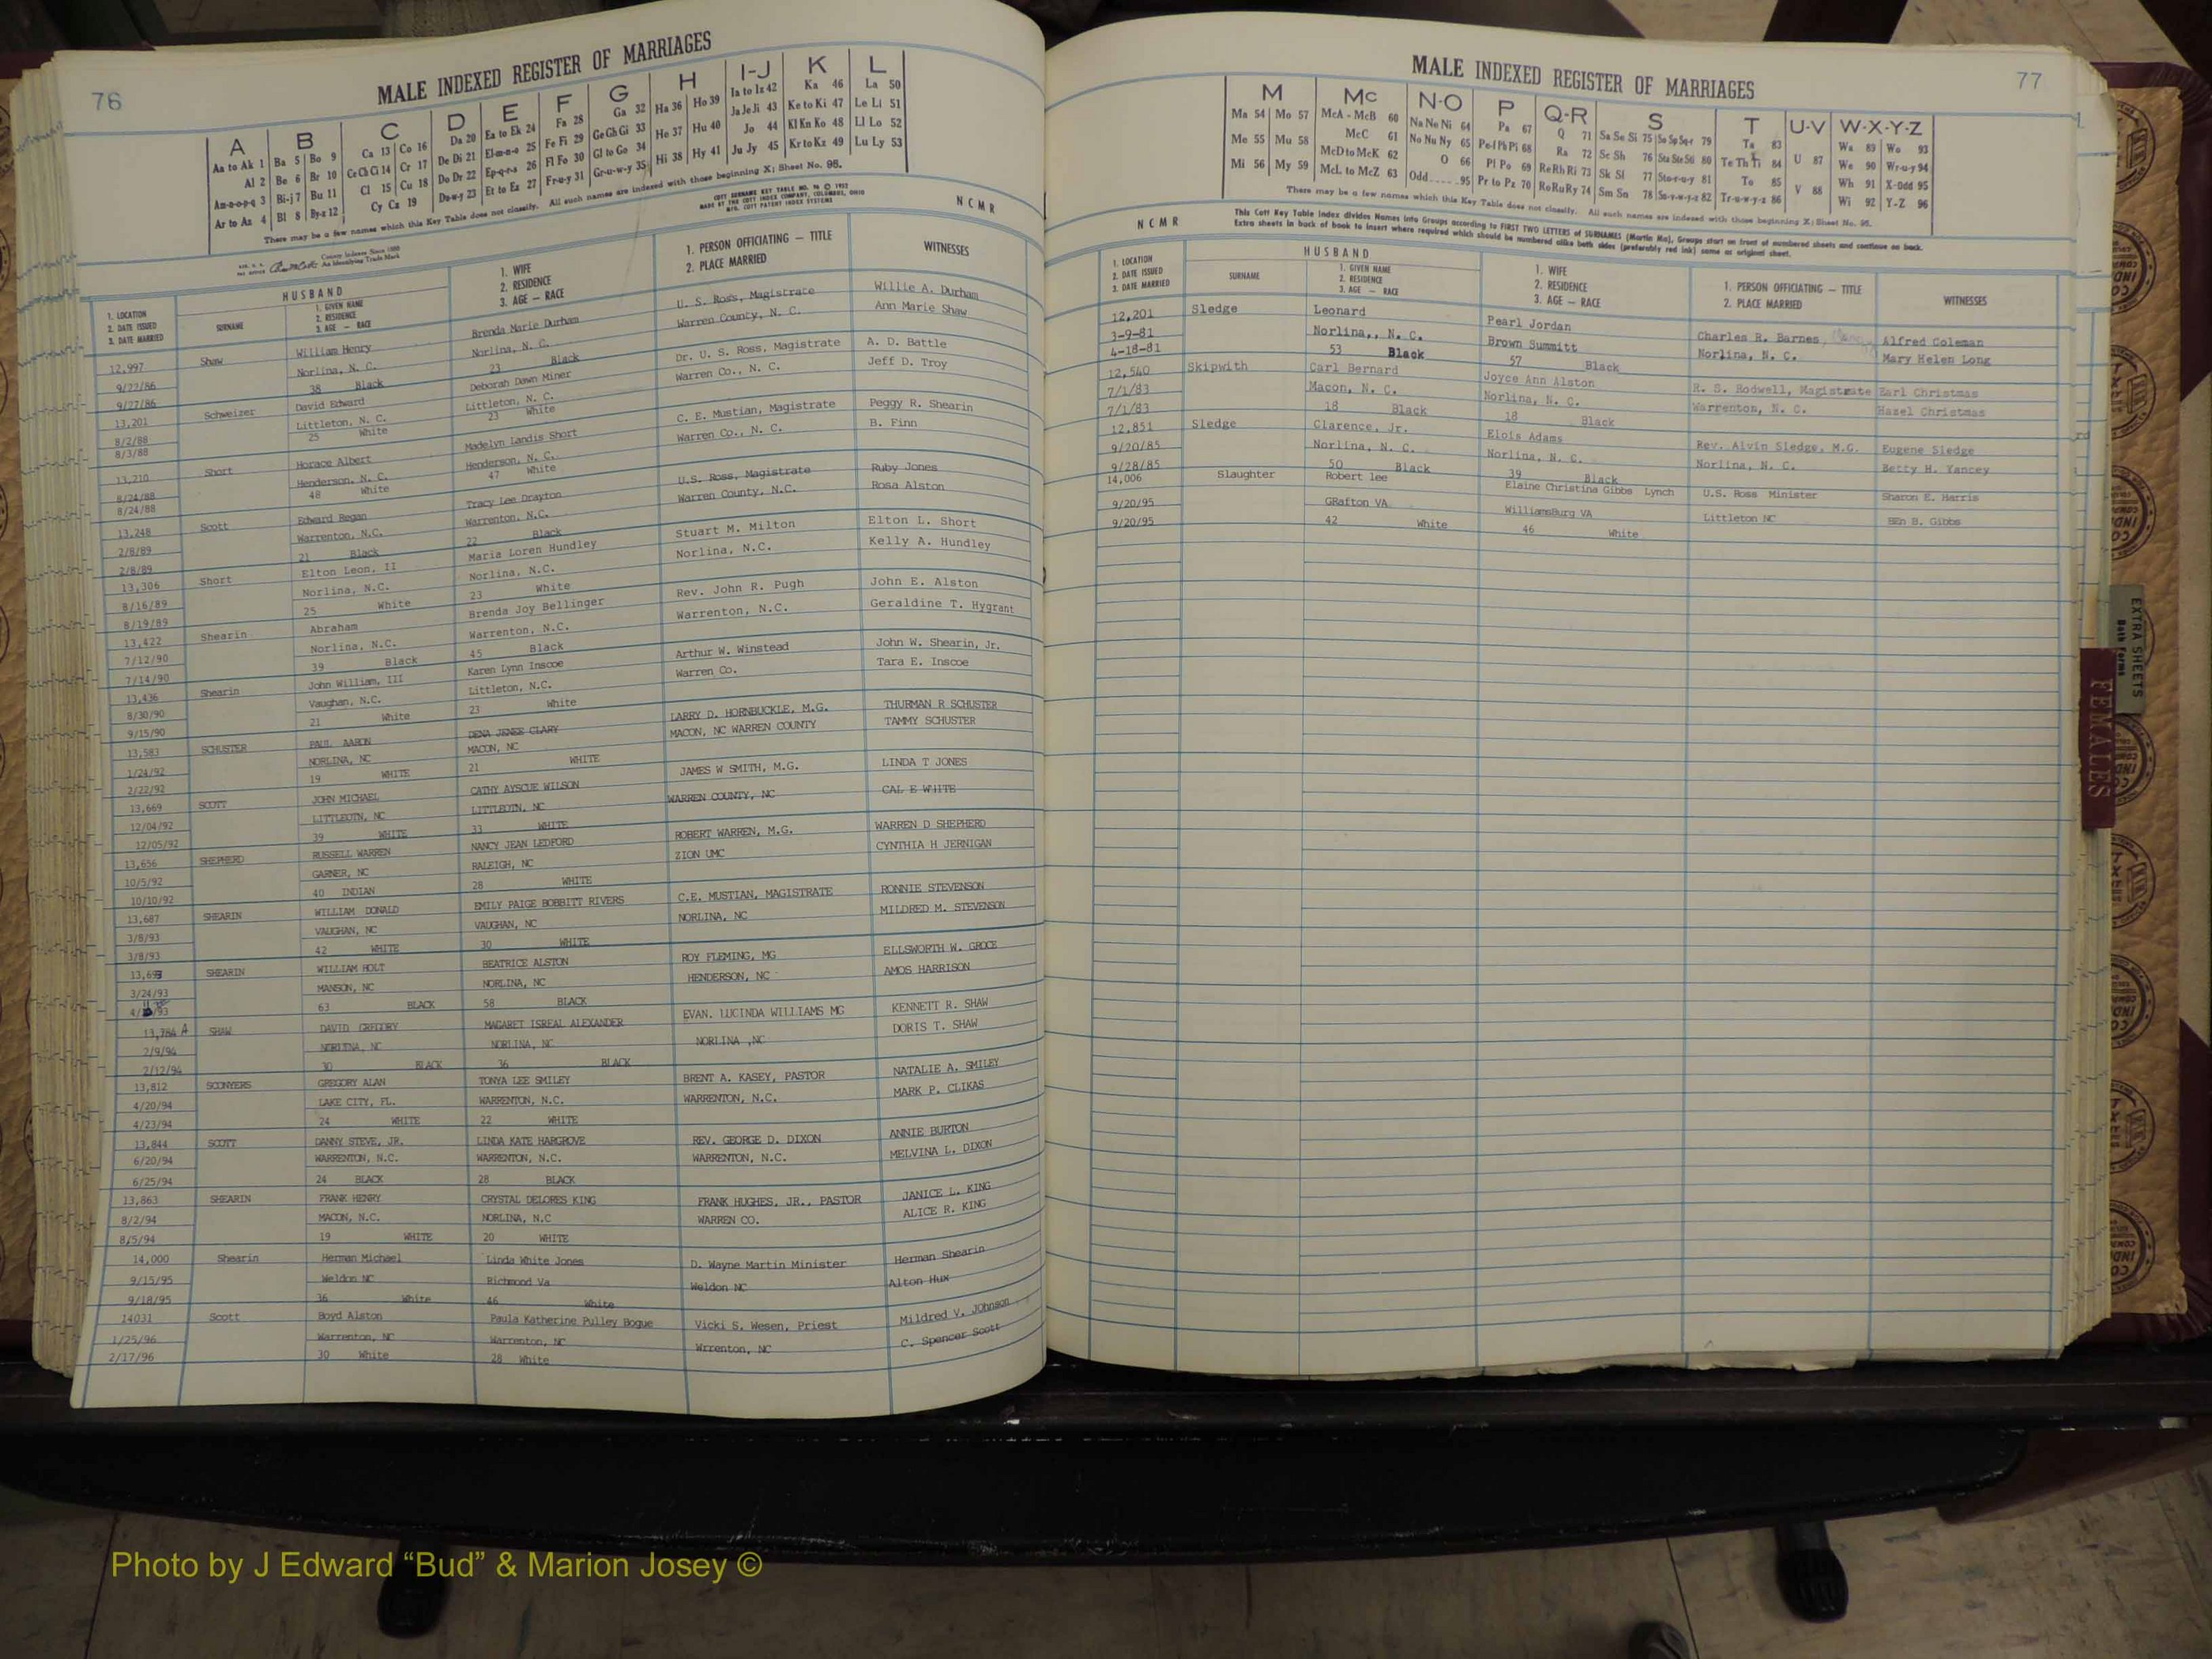 76
MALE INDEXED REGISTER OF MARRIAGES
A B C D E F G H I-J K L
Aa to Ak 1 Ba 5 Bo 9 Ca 13 Co 16 Da 20 Ea to Ek 24 Fa 28 Ga 32 Ha 36 Ho 39 Ia to Iz 42 Ka 46 La 50
Al 2 Be 6 Br 10 Ce Ch Ci 14 Cr 17 De Di 21 El-m-n-o 25 Fe Fi 29 Ge Gh Gi 33 He 37 Hu 40 Ja Je Ji 43 Ke to Ki 47 Le Li 51
Am-n-o-p-q 3 Bi-j 7 Bu 11 Cl 15 Cu 18 Do Dr 22 Ep-q-r-s 26 Fl Fo 30 Gl to Go 34 Hi 38 Hy 41 Jo 44 Kl Kn Ko 48 Ll Lo 52
Ar to Az 4 Bl 8 By-z 12 Cy Cz 19 Du-w-y 23 Et to Ez 27 Fr-u-y 31 Gr-u-w-y 35 Ju Jy 45 Kr to Kz 49 Lu Ly 53
There may be a few names which this Key Table does not classify. All such names are indexed with those beginning X; Sheet No. 95.
COTT SURNAME KEY TABLE NO. 96 © 1952
MADE BY THE COTT INDEX COMPANY, COLUMBUS, OHIO
MFG. COTT PATENT INDEX SYSTEMS
NCMR
County Indexes Since 1888
An Identifying Trade Mark
1. LOCATION
2. DATE ISSUED
3. DATE MARRIED
HUSBAND
SURNAME
1. GIVEN NAME
2. RESIDENCE
3. AGE — RACE
1. WIFE
2. RESIDENCE
3. AGE — RACE
1. PERSON OFFICIATING — TITLE
2. PLACE MARRIED
WITNESSES
12,997 Shaw William Henry Brenda Marie Durham U. S. Ross, Magistrate Willie A. Durham
9/22/86 Norlina, N. C. Norlina, N. C. Warren County, N. C. Ann Marie Shaw
9/27/86 38 Black 23 Black
13,201 Schweizer David Edward Deborah Dawn Miner Dr. U. S. Ross, Magistrate A. D. Battle
8/2/88 Littleton, N. C. Littleton, N. C. Warren Co., N. C. Jeff D. Troy
8/3/88 25 White 23 White
13,210 Short Horace Albert Madelyn Landis Short C. E. Mustian, Magistrate Peggy R. Shearin
8/24/88 Henderson, N. C. Henderson, N. C. Warren Co., N. C. B. Finn
8/24/88 48 White 47 White
13,248 Scott Edward Regan Tracy Lee Drayton U.S. Ross, Magistrate Ruby Jones
2/8/89 Warrenton, N.C. Warrenton, N.C. Warren County, N.C. Rosa Alston
2/8/89 21 Black 22 Black
13,306 Short Elton Leon, II Maria Loren Hundley Stuart M. Milton Elton L. Short
8/16/89 Norlina, N.C. Norlina, N.C. Norlina, N.C. Kelly A. Hundley
8/19/89 25 White 23 White
13,422 Shearin Abraham Brenda Joy Bellinger Rev. John R. Pugh John E. Alston
7/12/90 Norlina, N.C. Warrenton, N.C. Warrenton, N.C. Geraldine T. Hygrant
7/14/90 39 Black 45 Black
13,436 Shearin John William, III Karen Lynn Inscoe Arthur W. Winstead John W. Shearin, Jr.
8/30/90 Vaughan, N.C. Littleton, N.C. Warren Co. Tara E. Inscoe
9/15/90 21 White 23 White
13,583 SCHUSTER PAUL AARON DENA JENEE CLARY LARRY D. HORNBUCKLE, M.G. THURMAN R SCHUSTER
1/24/92 NORLINA, NC MACON, NC MACON, NC WARREN COUNTY TAMMY SCHUSTER
2/22/92 19 WHITE 21 WHITE
13,669 SCOTT JOHN MICHAEL CATHY AYSCUE WILSON JAMES W SMITH, M.G. LINDA T JONES
12/04/92 LITTLEOTN, NC LITTLEOTN, NC WARREN COUNTY, NC CAL E WHITE
12/05/92 39 WHITE 33 WHITE
13,656 SHEPHERD RUSSELL WARREN NANCY JEAN LEDFORD ROBERT WARREN, M.G. WARREN D SHEPHERD
10/5/92 GARNER, NC RALEIGH, NC ZION UMC CYNTHIA H JERNIGAN
10/10/92 40 INDIAN 28 WHITE
13,687 SHEARIN WILLIAM DONALD EMILY PAIGE BOBBITT RIVERS C.E. MUSTIAN, MAGISTRATE RONNIE STEVENSON
3/8/93 VAUGHAN, NC VAUGHAN, NC NORLINA, NC MILDRED M. STEVENSON
3/8/93 42 WHITE 30 WHITE
13,693 SHEARIN WILLIAM HOLT BEATRICE ALSTON ROY FLEMING, MG ELLSWORTH W. GROCE
3/24/93 MANSON, NC NORLINA, NC HENDERSON, NC AMOS HARRISON
63 BLACK 58 BLACK
13,784 A SHAW DAVID GREGORY MAGARET ISREAL ALEXANDER EVAN. LUCINDA WILLIAMS MG KENNETT R. SHAW
2/9/94 NORLINA, NC NORLINA, NC NORLINA ,NC DORIS T. SHAW
2/12/94 30 BLACK 36 BLACK
13,812 SCONYERS GREGORY ALAN TONYA LEE SMILEY BRENT A. KASEY, PASTOR NATALIE A. SMILEY
4/20/94 LAKE CITY, FL. WARRENTON, N.C. WARRENTON, N.C. MARK P. CLIKAS
4/23/94 24 WHITE 22 WHITE
13,844 SCOTT DANNY STEVE, JR. LINDA KATE HARGROVE REV. GEORGE D. DIXON ANNIE BURTON
6/20/94 WARRENTON, N.C. WARRENTON, N.C. WARRENTON, N.C. MELVINA L. DIXON
6/25/94 24 BLACK 28 BLACK
13,863 SHEARIN FRANK HENRY CRYSTAL DELORES KING FRANK HUGHES, JR., PASTOR JANICE L. KING
8/2/94 MACON, N.C. NORLINA, N.C WARREN CO. ALICE R. KING
8/5/94 19 WHITE 20 WHITE
14,000 Shearin Herman Michael Linda White Jones D. Wayne Martin Minister Herman Shearin
9/15/95 Weldon NC Richmond Va Weldon NC Alton Hux
9/18/95 36 White 46 White
14031 Scott Boyd Alston Paula Katherine Pulley Bogue Vicki S. Wesen, Priest Mildred V. JOhnson
1/25/96 Warrenton, NC Warrenton, NC Wrrenton, NC C. Spencer Scott
2/17/96 30 White 28 White
77
MALE INDEXED REGISTER OF MARRIAGES
M Mc N-O P Q-R S T U-V W-X-Y-Z
Ma 54 Mo 57 McA - McB 60 Na Ne Ni 64 Pa 67 Q 71 Sa Se Si 75 So Sp Sq-r 79 Ta 83 Wa 89 Wo 93
Me 55 Mu 58 McC 61 No Nu Ny 65 Pe-f Ph Pi 68 Ra 72 Sc Sh 76 Sta Ste Sti 80 Te Th Ti 84 U 87 We 90 Wr-u-y 94
Mi 56 My 59 McD to McK 62 O 66 Pl Po 69 Re Rh Ri 73 Sk Sl 77 Sto-r-u-y 81 To 85 V 88 Wh 91 X-Odd 95
McL to McZ 63 Odd 95 Pr to Pz 70 Ro Ru Ry 74 Sm Sn 78 Su-v-w-y-z 82 Tr-u-w-y-z 86 Wi 92 Y-Z 96
There may be a few names which this Key Table does not classify. All such names are indexed with those beginning X; Sheet No. 95.
NCMR
This Cott Key Table Index divides Names into Groups according to FIRST TWO LETTERS of SURNAMES (Martin Ma), Groups start on front of numbered sheets and continue on back.
Extra sheets in back of book to insert where required which should be numbered alike both sides (preferably red ink) same as original sheet.
1. LOCATION
2. DATE ISSUED
3. DATE MARRIED
HUSBAND
SURNAME
1. GIVEN NAME
2. RESIDENCE
3. AGE — RACE
1. WIFE
2. RESIDENCE
3. AGE — RACE
1. PERSON OFFICIATING — TITLE
2. PLACE MARRIED
WITNESSES
12,201 Sledge Leonard Pearl Jordan Charles R. Barnes, Alfred Coleman
3-9-81 Norlina,, N. C. Brown Summitt Norlina, N. C. Mary Helen Long
4-18-81 53 Black 57 Black
12,540 Skipwith Carl Bernard Joyce Ann Alston R. S. Rodwell, Magistrate Earl Christmas
7/1/83 Macon, N. C. Norlina, N. C. Warrenton, N. C. Hazel Christmas
7/1/83 18 Black 18 Black
12,851 Sledge Clarence, Jr. Elois Adams Rev. Alvin Sledge, M.G. Eugene Sledge
9/20/85 Norlina, N. C. Norlina, N. C. Norlina, N. C. Betty H. Yancey
9/28/85 50 Black 39 Black
14,006 Slaughter Robert lee Elaine Christina Gibbs Lynch U.S. Ross Minister Sharon E. Harris
9/20/95 GRafton VA WilliamsBurg VA Littleton NC BEn B. Gibbs
9/20/95 42 White 46 White
EXTRA SHEETS
Both Forms
FEMALES
Photo by J Edward “Bud” & Marion Josey ©